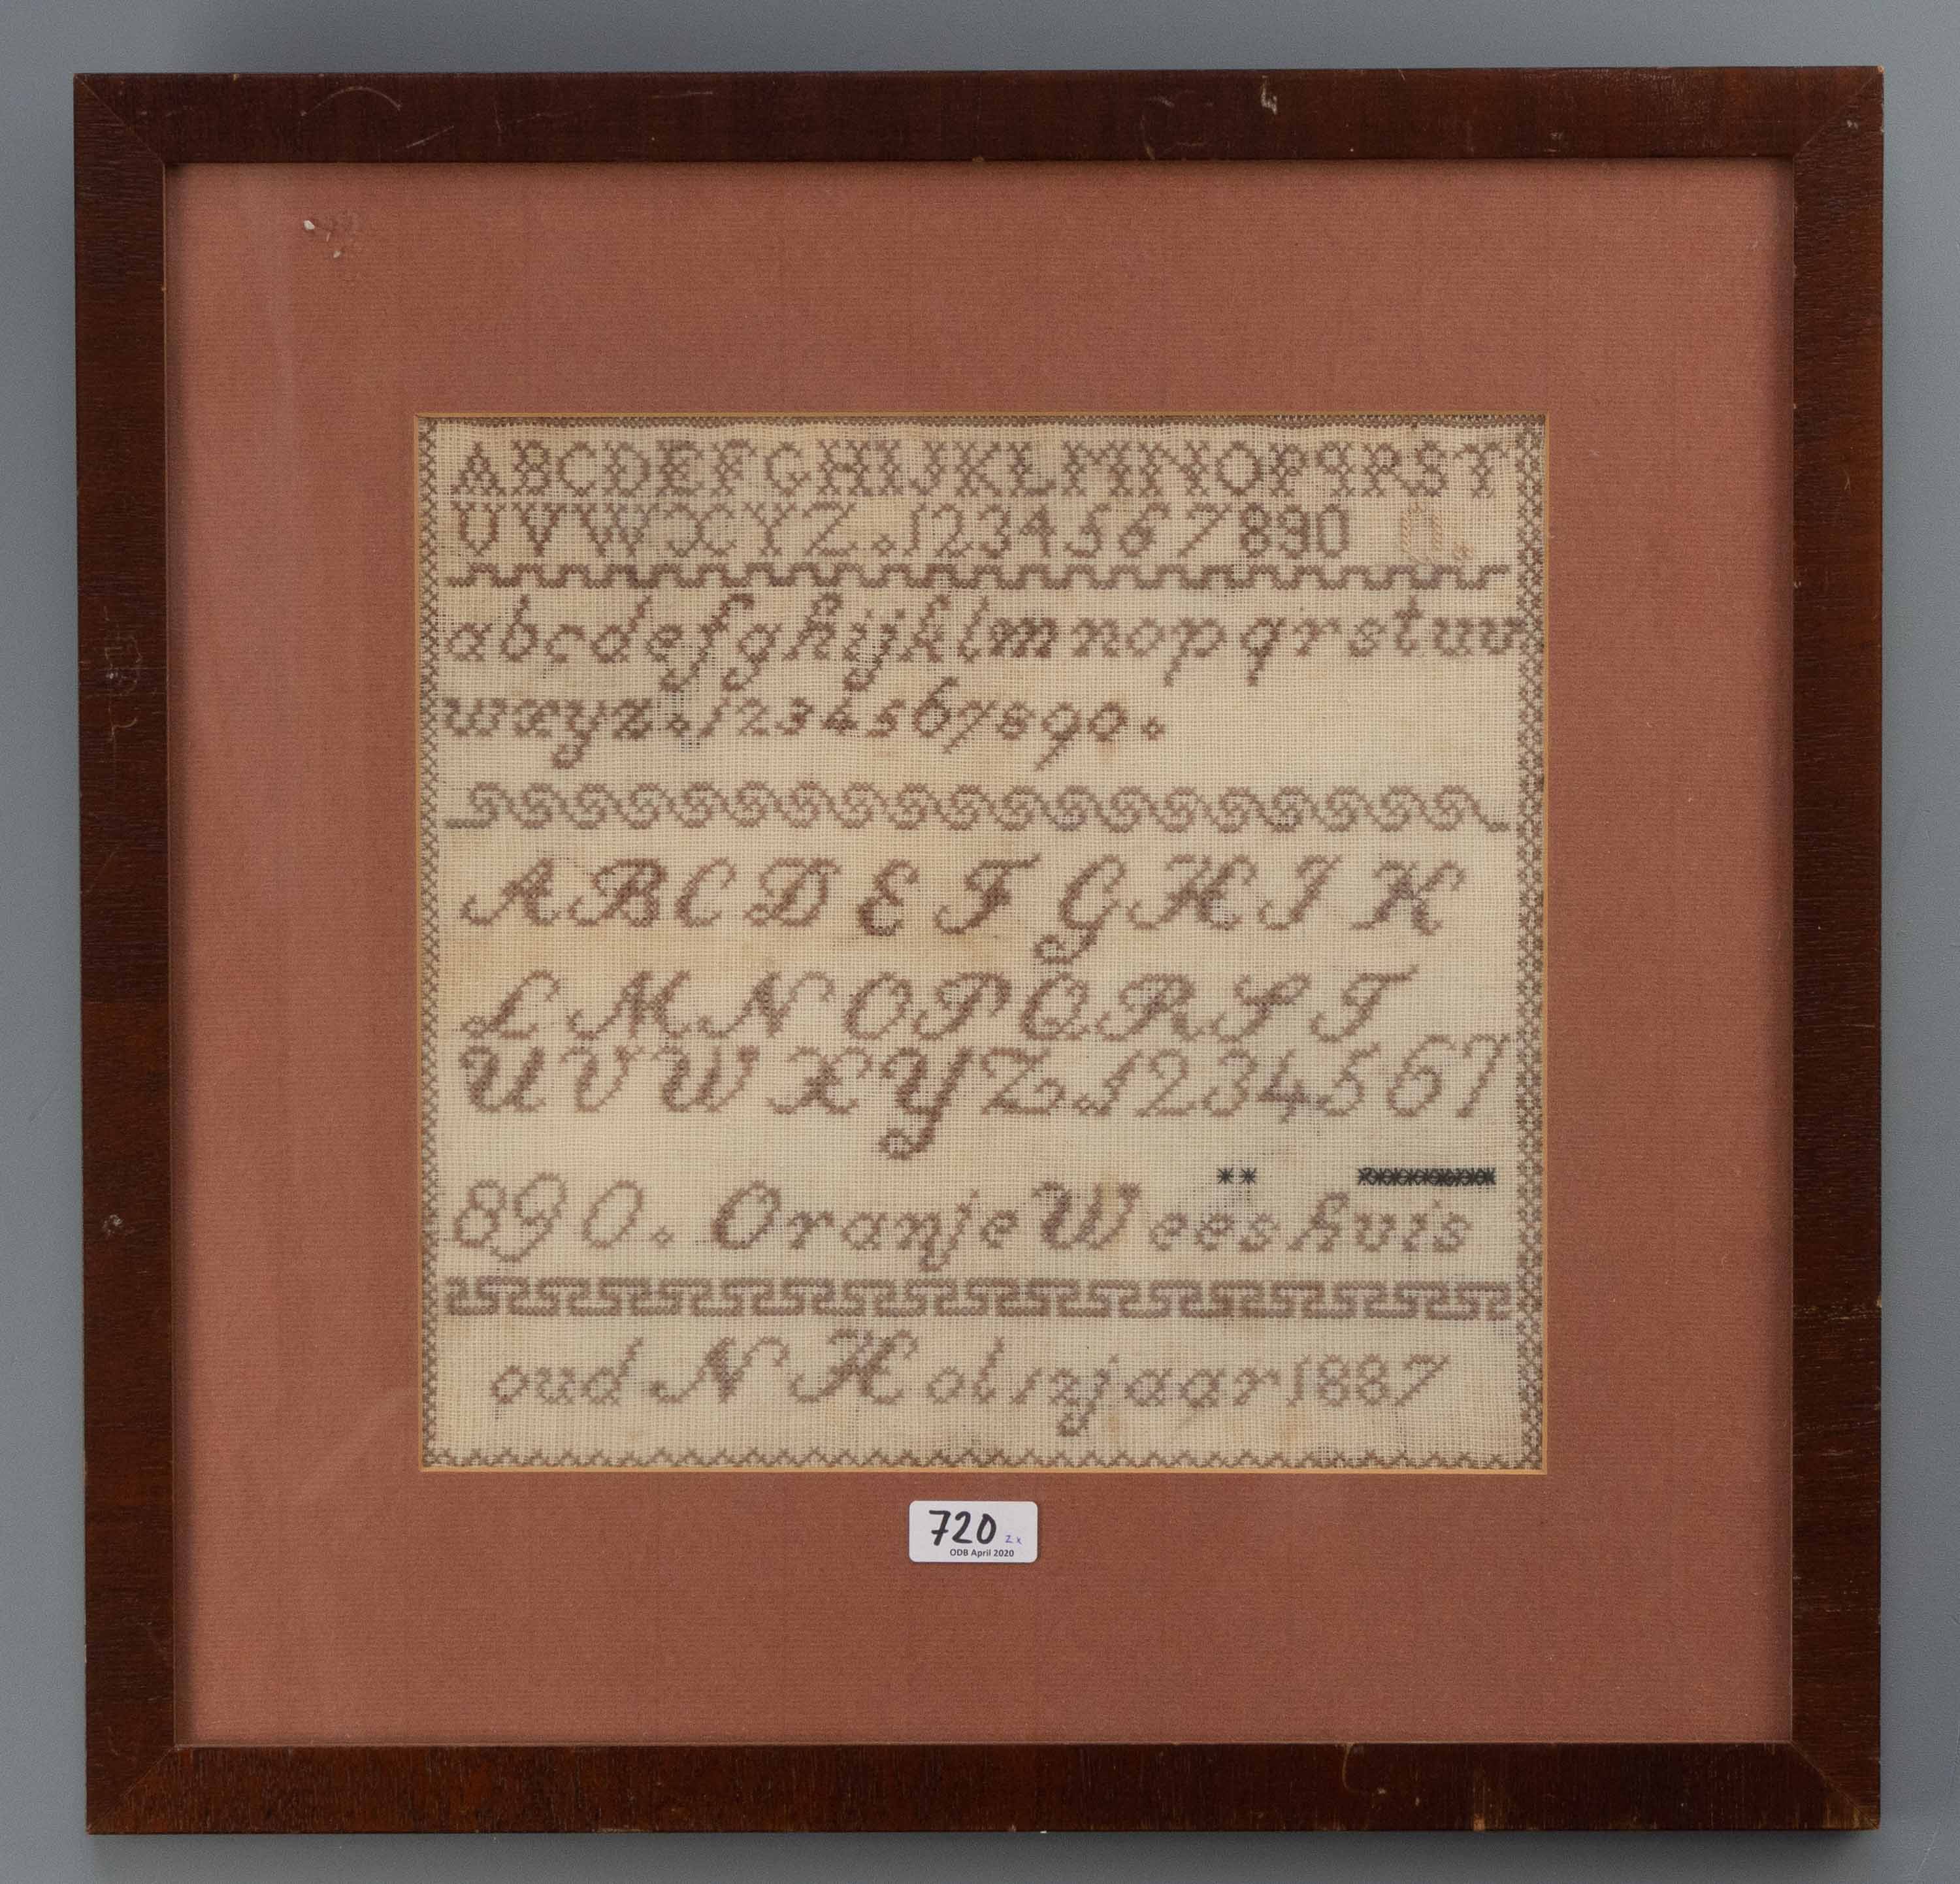 ABCDEFGHIJKLMNOPQRST
UVWXYZ.1234567890
abcdefghijklmnopqrstuv
wxyz.1234567890.
ABCDEFGHIK
LMNOPQRST
UVWXYZ.1234567
890. Oranje Weeshuis
oud N H ol 12 jaar 1887
720 2x
ODB April 2020